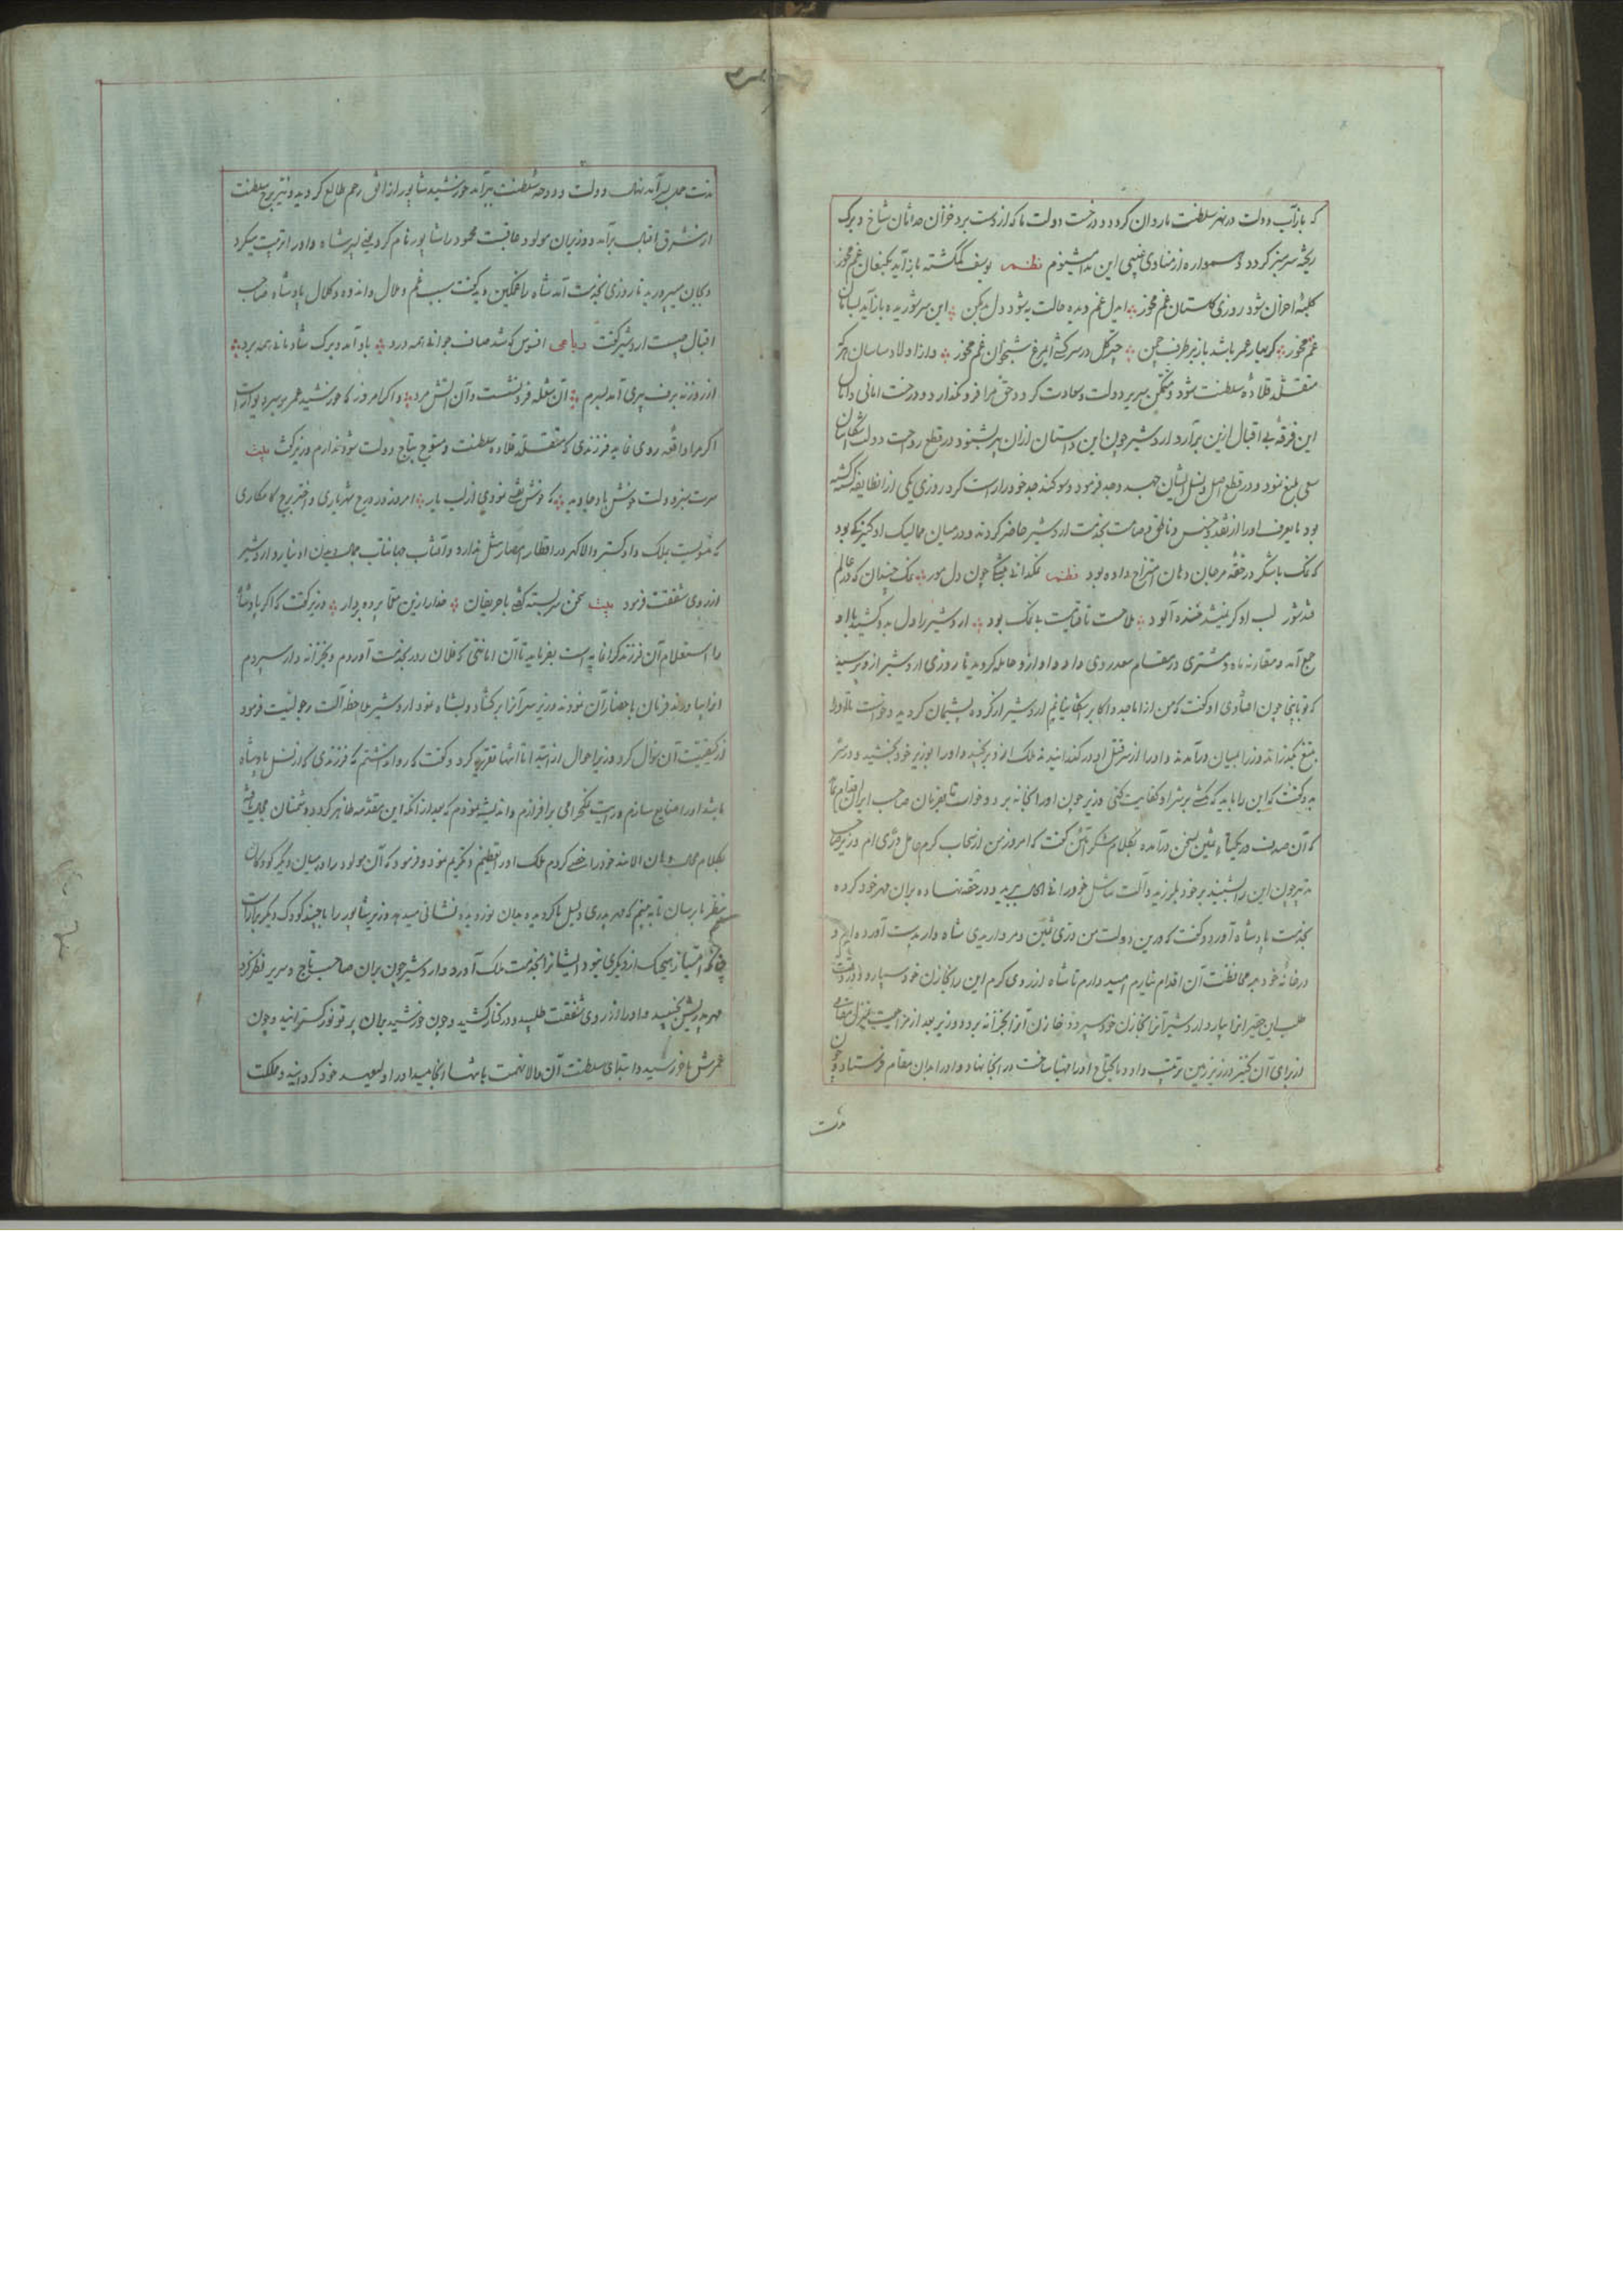 که باز آب دولت در نهر سلطنت ما روان کردد و درخت دولت ما که از دست برد خزان حدثان شاخ و برک
ریخته سرسبز کردد و همواره از منادی غیبی این ندا میشنوم نظم یوسف کمکشته باز آید بکنعان غم مخور
کلبهٔ احزان شود روزی کلستان غم مخور ای دل غم دیده حالت به شود دل بد مکن این سر شوریده باز آید بسامان
غم مخور کر بهار عمر باشد باز بر طرف چمن چتر کل در سر کشی ای مرغ شبخوان غم مخور و از اولاد ساسان هر که
متقلد قلاده سلطنت شود و متمکن سریر دولت و سعادت کردد حق مرا فرو نکذارد و درخت امانی و امال
این فرقه بی اقبال از بن برآرد اردشیر چون این داستان از ان پسر بشنود در قطع دوحه دولت اشکانیان
سعی بلیغ نمود و در قطع اصل و نسل ایشان جهد و جد فرمود و سوکند جد خود را راست کرد روزی یکی از ان طایفه کشته
بود ما یعرف او را از نقد و جنس و ناطق و صامت بخدمت اردشیر حاضر کردند و در میان ممالیک او کنیزکی بود
که نمک با شکر در حقه مرجان دهان امتزاج داده بود نظم نمکدانی چون دل مور نمک چندان که در عالم
فتد شور لب او کر نبیند خنده آلود ملاحت تا قیامت بی نمک بود اردشیر را دل بدو کشید با او
جمع آمد و مقارنه ماه و مشتری در مقام سعد روی داد و او ازو حامله کردید تا روزی اردشیر ازو پرسید
که تو با چون افتادی او کفت که من از اماجد و اکابر اشکانیانم اردشیر از کرده پشیمان کردید و خواست تا او را
بتیغ بکذراند وزرا بمیان درآمدند و او را از سر قتل او در کذرانیدند ملک ازو برنجید و او را بوزیر خود بخشید و در سر
بدو کفت که این را باید که شر او کفایت کنی وزیر چون او را بخانه برد و خواست تا بفرمان صاحب ایران اقدام نماید
که آن صدف در یکتاء ثمین بسخن درآمده بکلام شکر آئین کفت که امروز من از سحاب کرم حامل دری ام وزیر صاحب
تدبیر چون این را شنید بر خود بلرزید و آلت تناسل خود را فی الحال برید و در حقه نهاده بر ان مهر خود کرده
بخدمت پادشاه آورد و کفت که در این دولت من دری ثمین و مرواریدی شاه وار بدست آورده ایم و
در خانه خود بر محافظت آن اقدام نیارم امید دارم تا شاه از روی کرم این را بخازن خود سپارد و در وقت
طلب این حقیر انرا باز دارد اردشیر آنرا بخازن خود سپرد و خازن آنرا بخزانه برد و وزیر بعد از مراجعت بمنزل مقامی
از برای آن کنیز در زیر زمین ترتیب داد و ما یحتاج او را مهیا ساخت در انجا نهاد و او را بدان مقام فرستاد و چون
مدت
مدت حمل سرآمد نهال دولت و دوحه سلطنت ببرآمد خورشید شاپور از افق رحم طالع کردید و نیر برج سلطنت
از مشرق اقبال برآمد و وزیر ان مولود عاقبت محمود را شاپور نام کرد یعنی پسر شاه و او را تربیت میکرد
و بجان میپرورید تا روزی بخدمت آمد شاه را غمکین دید کفت سبب غم و ملال و اندوه و کلال پادشاه صاحب
اقبال چیست اردشیر کفت رباعی افسوس که شد صاف جوانی همه درد باد آمد و برک شادمانی همه برد
از روزنه برف پیری آمد بسرم آن شعله فرو نشست و آن آتش مرد و اکر امروز که خورشید عمر بر سر دیوار است
اکر مرا واقعه روی نماید فرزندی که متقلد قلاده سلطنت و متوج بتاج دولت شود ندارم وزیر کفت بیت
سرت سبز و دولت خوش باد جاوید که خوش نقشی نمودی از لب یار امروز در درج شهریاری و اختر برج کامکاری
که تمویت بملک داد کستر والا کهر در اقطار امصار مثل ندارد و آفتاب جهانتاب بمجال دیدن او نیارد اردشیر
از روی شفقت فرمود بیت سخن سربسته کفتی با حریفان خدا را زین معما پرده بردار وزیر کفت که اکر پادشاه
را استعلام آن فرزند کرانمایه است بفرماید تا آن امانتی که فلان روز بخدمت آوردم و بخزانه دار سپردم
انرا بیاورند فرمان باحضار آن نمودند وزیر سر آنرا بر کشاد و بشاه نمود اردشیر ملاحظه آلت رجولیت فرمود
از کیفیت آن سؤال کرد وزیر احوال از ابتدا تا انتها تقریر کرد و کفت که روا نداشتم که فرزندی که از نسل پادشاه
باشد او را ضایع سازم و رایت نمکحرامی برافرازم و اندیشه نمودم که بعد از انکه این مقدمه ظاهر کردد دشمنان
بکلام خود را خصی کردم ملک او را تعظیم و تکریم نمود و فرمود که آن مولود را در میان دیکر کودکان
بنظر ما برسان تا به بینم که مهر پدری دلیل ناکردیده و جان نوردیده نشانی میدهد وزیر شاپور را با چند کودک دیکر براراست
چنانکه امتیاز هیچیک از دیکری نبود ایشانرا بخدمت ملک آورد و اردشیر چون بر ان صاحب تاج و سریر نظر کرد
مهر پدریش بجنبید و او را از روی شفقت طلبید و در کنار کشید و چون خورشید بر ان پرتو نور کسترانید و چون
عمرش باخر رسید و ابتدای سلطنت آن والا نهمت بانتها انجامید او را ولیعهد خود کردانید و مملکت